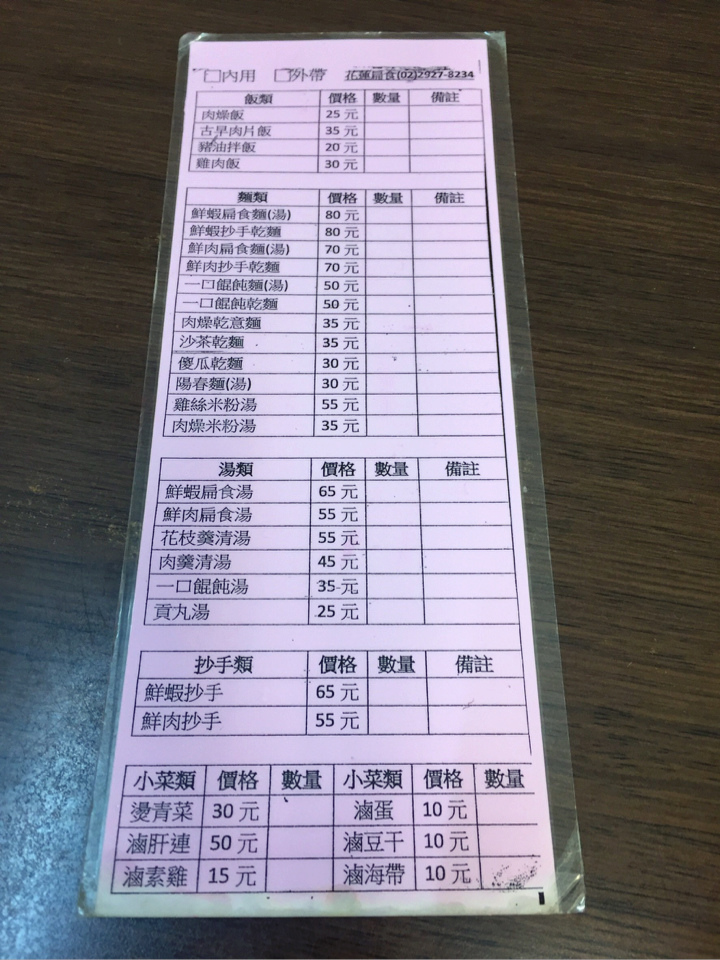 □內用 □外帶 花蓮扁食(02)2927-8234
飯類 價格 數量 備註
肉燥飯 25 元
古早肉片飯 35 元
豬油拌飯 20 元
雞肉飯 30 元
麵類 價格 數量 備註
鮮蝦扁食麵(湯) 80 元
鮮蝦抄手乾麵 80 元
鮮肉扁食麵(湯) 70 元
鮮肉抄手乾麵 70 元
一口餛飩麵(湯) 50 元
一口餛飩乾麵 50 元
肉燥乾意麵 35 元
沙茶乾麵 35 元
傻瓜乾麵 30 元
陽春麵(湯) 30 元
雞絲米粉湯 55 元
肉燥米粉湯 35 元
湯類 價格 數量 備註
鮮蝦扁食湯 65 元
鮮肉扁食湯 55 元
花枝羹清湯 55 元
肉羹清湯 45 元
一口餛飩湯 35 元
貢丸湯 25 元
抄手類 價格 數量 備註
鮮蝦抄手 65 元
鮮肉抄手 55 元
小菜類 價格 數量 小菜類 價格 數量
燙青菜 30 元 滷蛋 10 元
滷肝連 50 元 滷豆干 10 元
滷素雞 15 元 滷海帶 10 元